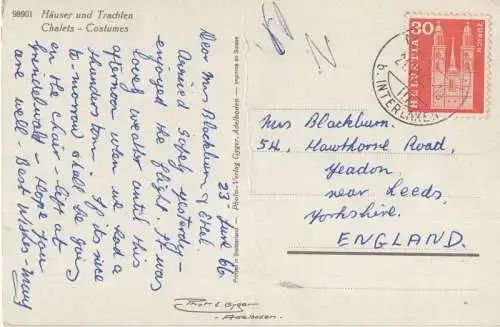 98901 Häuser und Trachten
Chalets - Costumes
23 June 66.
Dear Mrs Blackburn & Ethel.
Arrived safely yesterday -
enjoyed the flight. It was
lovely weather until this
afternoon when we had a
thunderstorm. If its nice
to-morrow shall be going
on the chair-lift at
Grindelwald - Hope you
are well - Best Wishes - Mary
Printed in Switzerland - Photo-Verlag Gyger, Adelboden - Imprimé en Suisse
30
HELVETIA
ZÜRICH
b. INTERLAKEN
Mrs Blackburn.
54, Hawthorne Road,
Yeadon
near Leeds,
Yorkshire.
ENGLAND.
Phot. E. Gyger
- Adelboden -